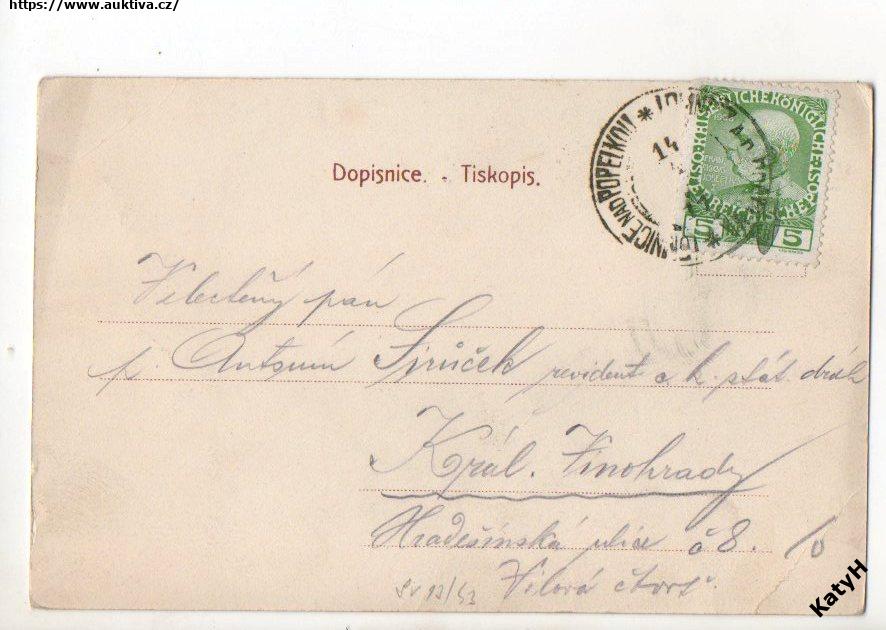 https://www.auktiva.cz/
Dopisnice. - Tiskopis.
LOMNICE NAD POPELKOU * LOMNITZ A.D. POPELKA *
14
KAISERLICHE KÖNIGLICHE ÖSTERREICHISCHE POST
5 5
Velectěný pán
p. Antonín Jirůček revident c. k. stát. drah
Král. Vinohrady
Hradešínská ulice č 8.
Vilová čtvrť
KatyH